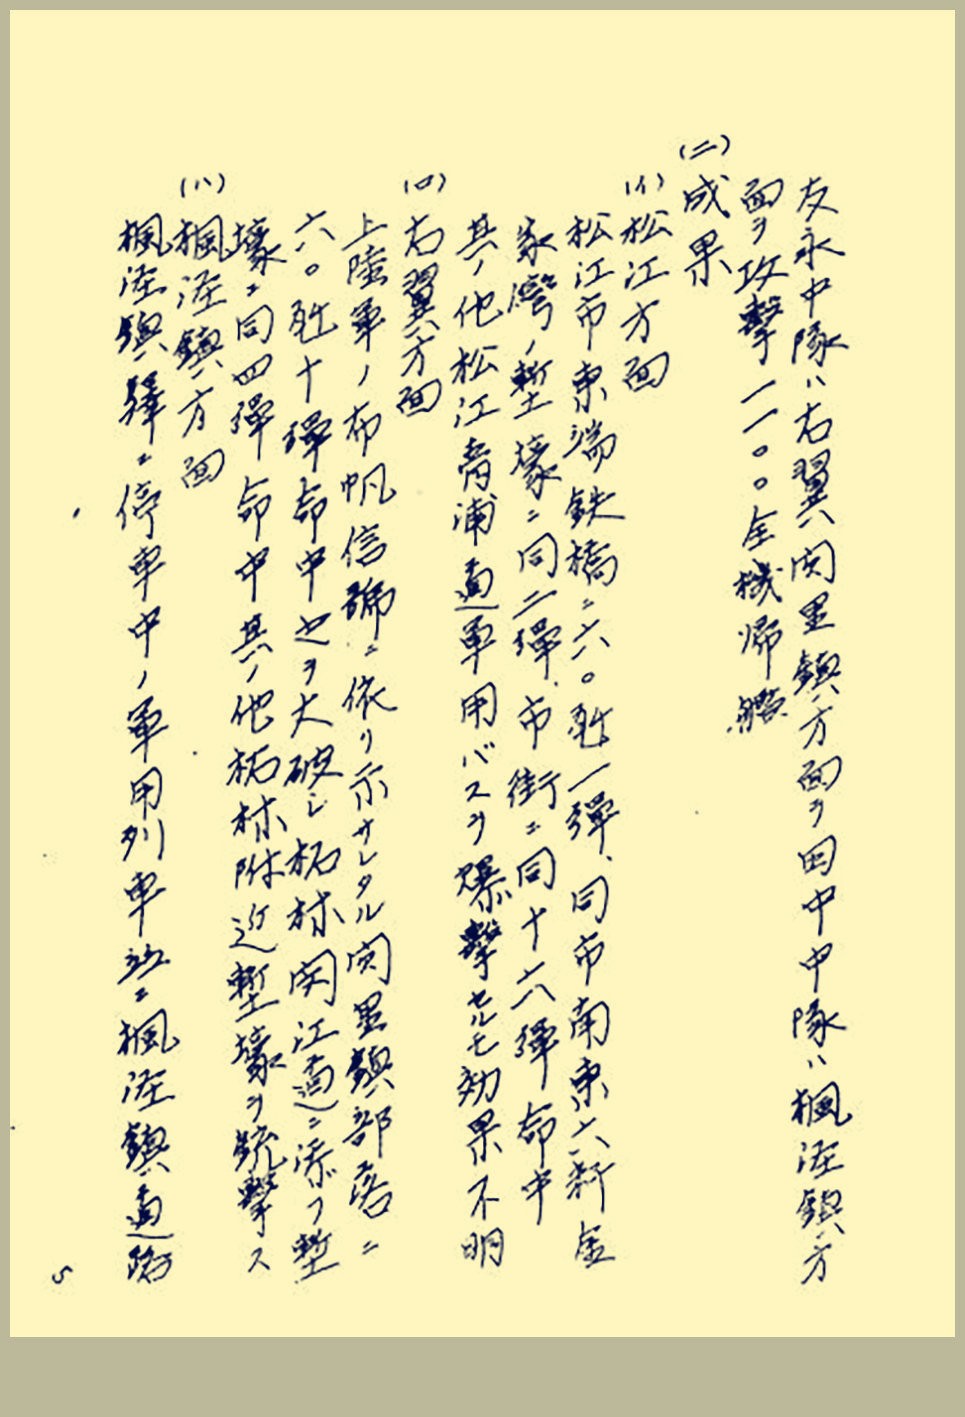 友永中隊ハ右翼関里鎮方面ヲ田中中隊ハ楓涇鎮方
面ヲ攻撃一一〇〇全機帰艦
(二)成果
(イ)松江方面
松江市東端鉄橋ニ六〇瓩一弾、同市南東六粁金
家湾ノ塹壕ニ同二弾、市街ニ同十六弾命中
其ノ他松江青浦道軍用バスヲ爆撃セルモ効果不明
(ロ)右翼方面
上陸軍ノ布帆信號ニ依リ示サレタル関里鎮部落ニ
六〇瓩十弾命中之ヲ大破シ柘林関江道ニ添フ塹
壕ニ同四弾命中其ノ他柘林附近塹壕ヲ銃撃ス
(ハ)楓涇鎮方面
楓涇鎮驛ニ停車中ノ軍用列車並ニ楓涇鎮道路
5